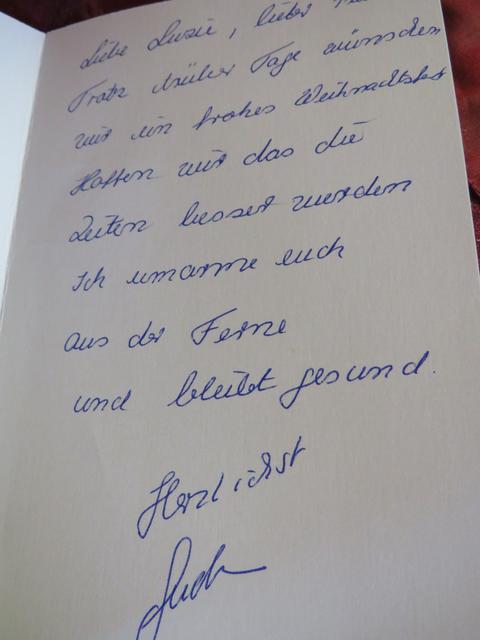 Liebe Susie, lieber
Trotz trüber Tage wünschen
wir ein frohes Weihnachtsfest
Hoffen wir das die
Zeiten besser werden
Ich umarme euch
aus der Ferne
und bleibt gesund.
Herzlichst